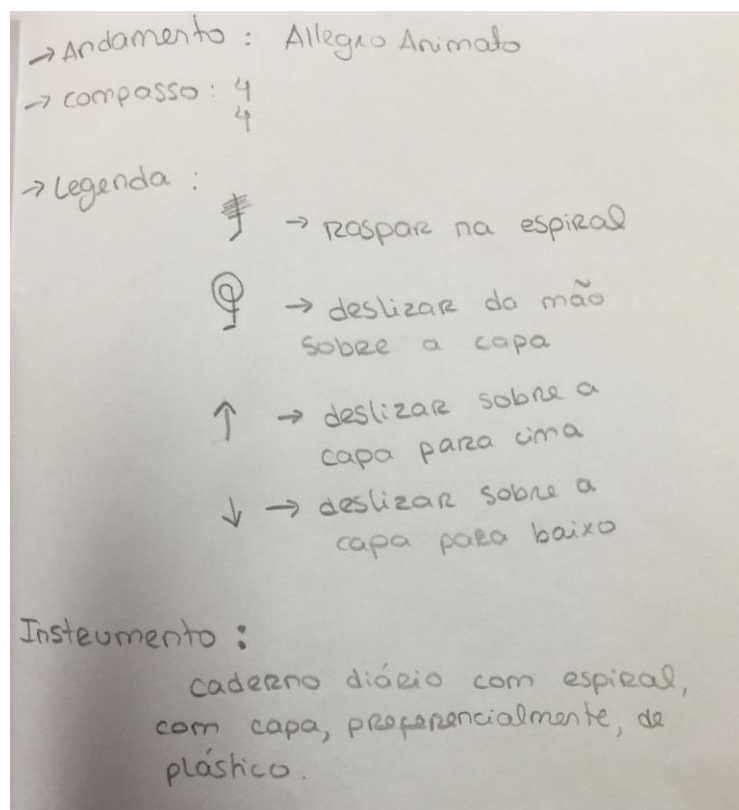 → Andamento : Allegro Animato
→ compasso : 4
4
→ Legenda :
→ raspar na espiral
→ deslizar da mão
sobre a capa
↑ → deslizar sobre a
capa para cima
↓ → deslizar sobre a
capa para baixo
Instrumento :
caderno diário com espiral,
com capa, preferencialmente, de
plástico.